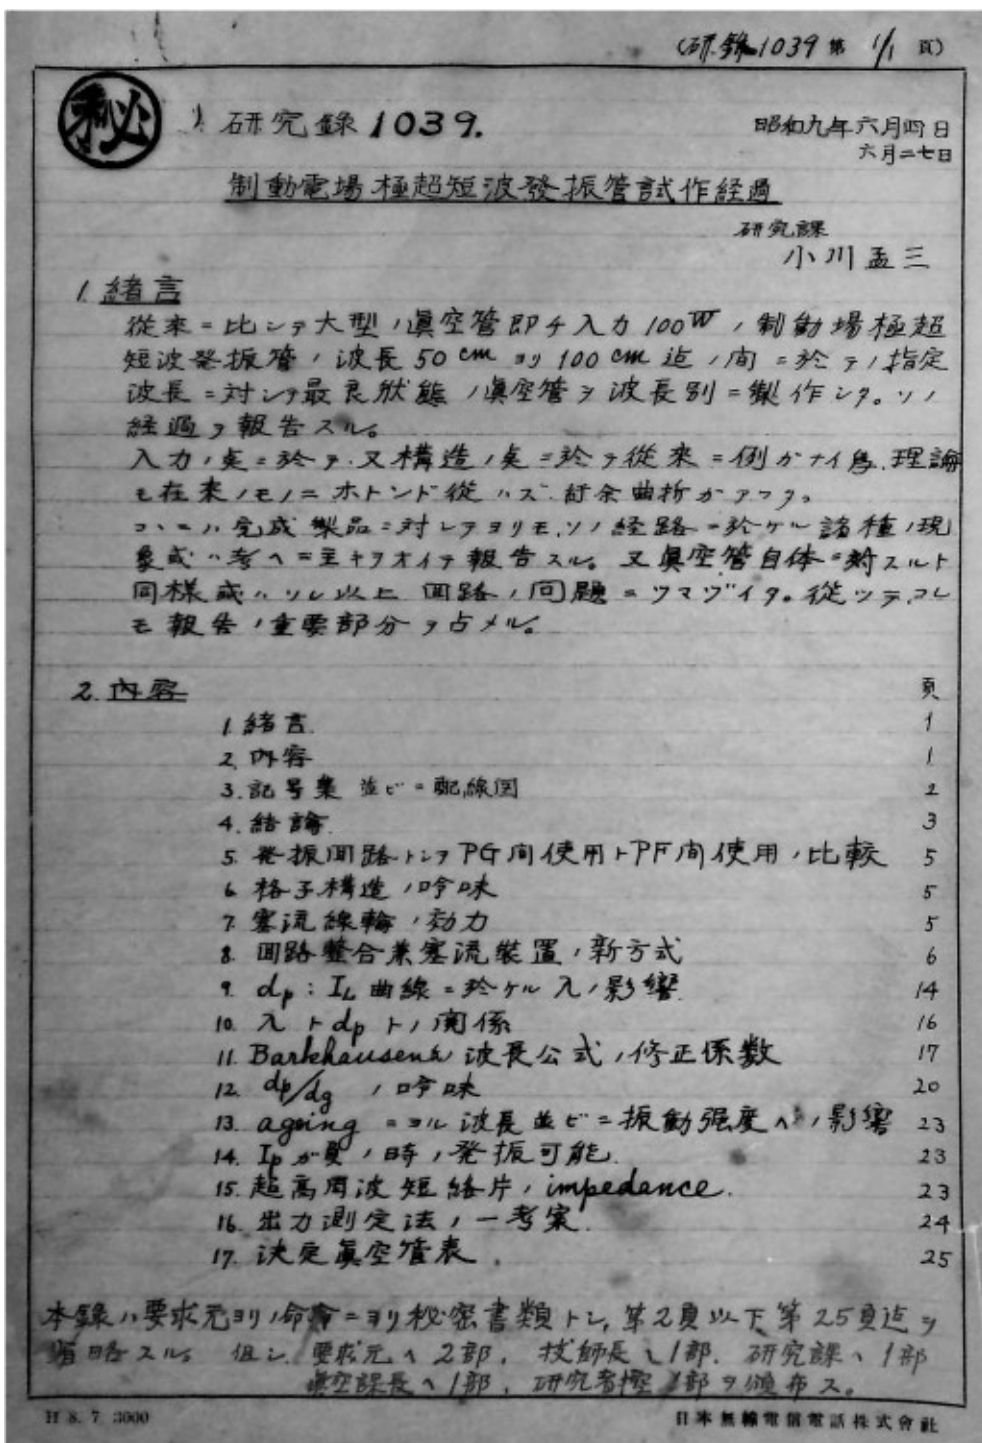 (研錄1039 第 1/1 頁)
秘
研究錄1039.
昭和九年六月四日
六月二七日
制動電場極超短波發振管試作経過
研究課
小川孟三
1. 緒言
従来ニ比シテ大型ノ眞空管即チ入力100W ノ制動場極超
短波発振管ノ波長50cmヨリ100cm迄ノ間ニ於テノ指定
波長ニ対シテ最良狀態ノ眞空管ヲ波長別ニ製作シタ。ソノ
経過ヲ報告スル。
入力ノ点ニ於テ.又構造ノ点ニ於テ従来ニ例ガナイ為.理論
モ在来ノモノニホトンド從ハズ.紆余曲折ガアツタ。
コヽニハ完成製品ニ対シテヨリモ.ソノ経路ニ於ケル諸種ノ現
象或ハ考ヘニ主キヲオイテ報告スル。又眞空管自体ニ対スルト
同様或ハソレ以上 回路ノ问題ニツマヅイタ。從ツテ.コレ
モ報告ノ重要部分ヲ占メル。
2. 內容 頁
1. 緒言. 1
2. 内容 1
3. 記号集 並ビニ配線図 2
4. 結論. 3
5. 発振回路トシテPG间使用トPF间使用ノ比較 5
6. 格子構造ノ吟味 5
7. 塞流線輪ノ効力 5
8. 回路整合兼塞流裝置ノ新方式 6
9. dp : IL 曲線ニ於ケル λノ影響. 14
10. λ ト dp トノ関係 16
11. Barkhausenノ波長公式ノ修正係数 17
12. dp/dg ノ吟味 20
13. ageing ニヨル波長並ビニ振動强度ヘノ影響 23
14. Ip ガ負ノ時ノ発振可能. 23
15. 超高周波短絡片ノimpedance. 23
16. 出力測定法ノ一考案. 24
17. 決定眞空管表. 25
本錄ハ要求元ヨリノ命令ニヨリ秘密書類トシ,第2頁以下第25頁迄ヲ
省略スル。但シ.要求元ヘ2部.技師長ヘ1部.研究課ヘ1部
眞空課長ヘ1部.研究者控1部ヲ頒布ス。
H 8. 7. 3000
日本無線電信電話株式會社